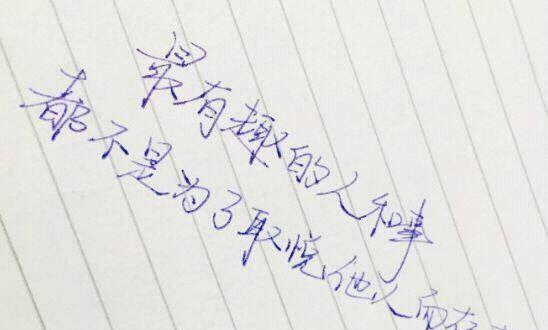 最有趣的人和事
都不是为了取悦他人而存